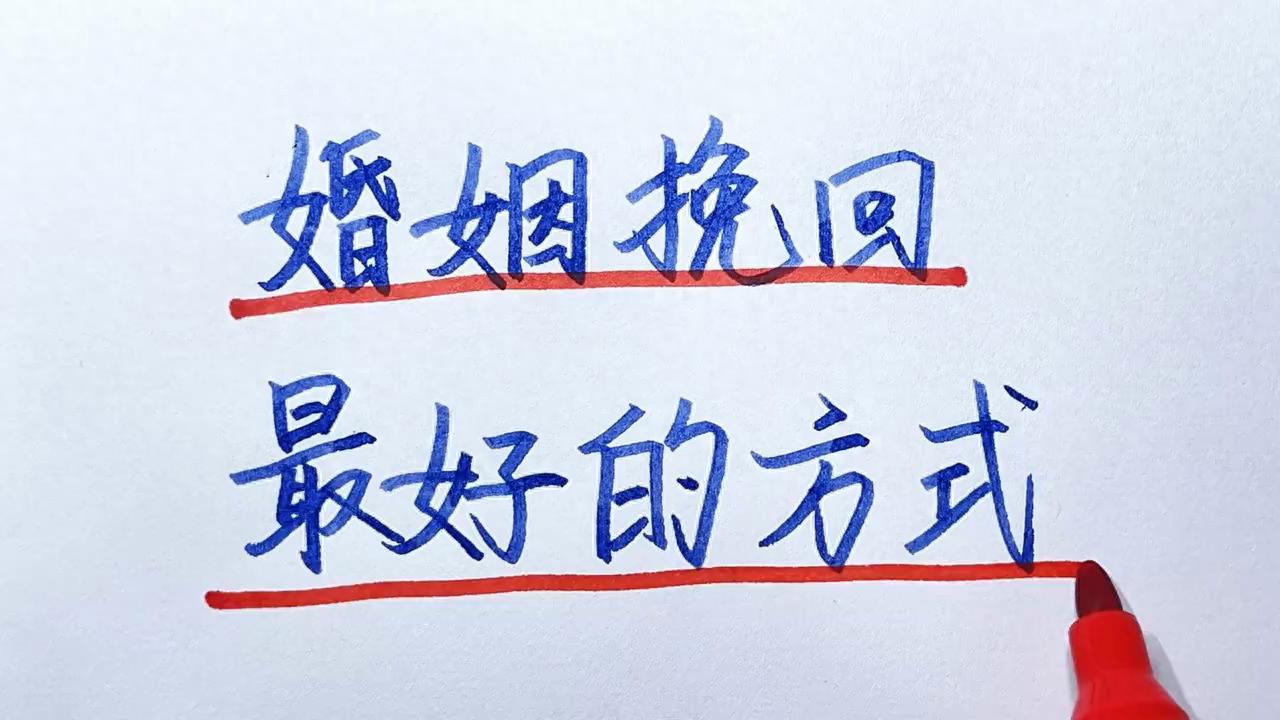 婚姻挽回
最好的方式